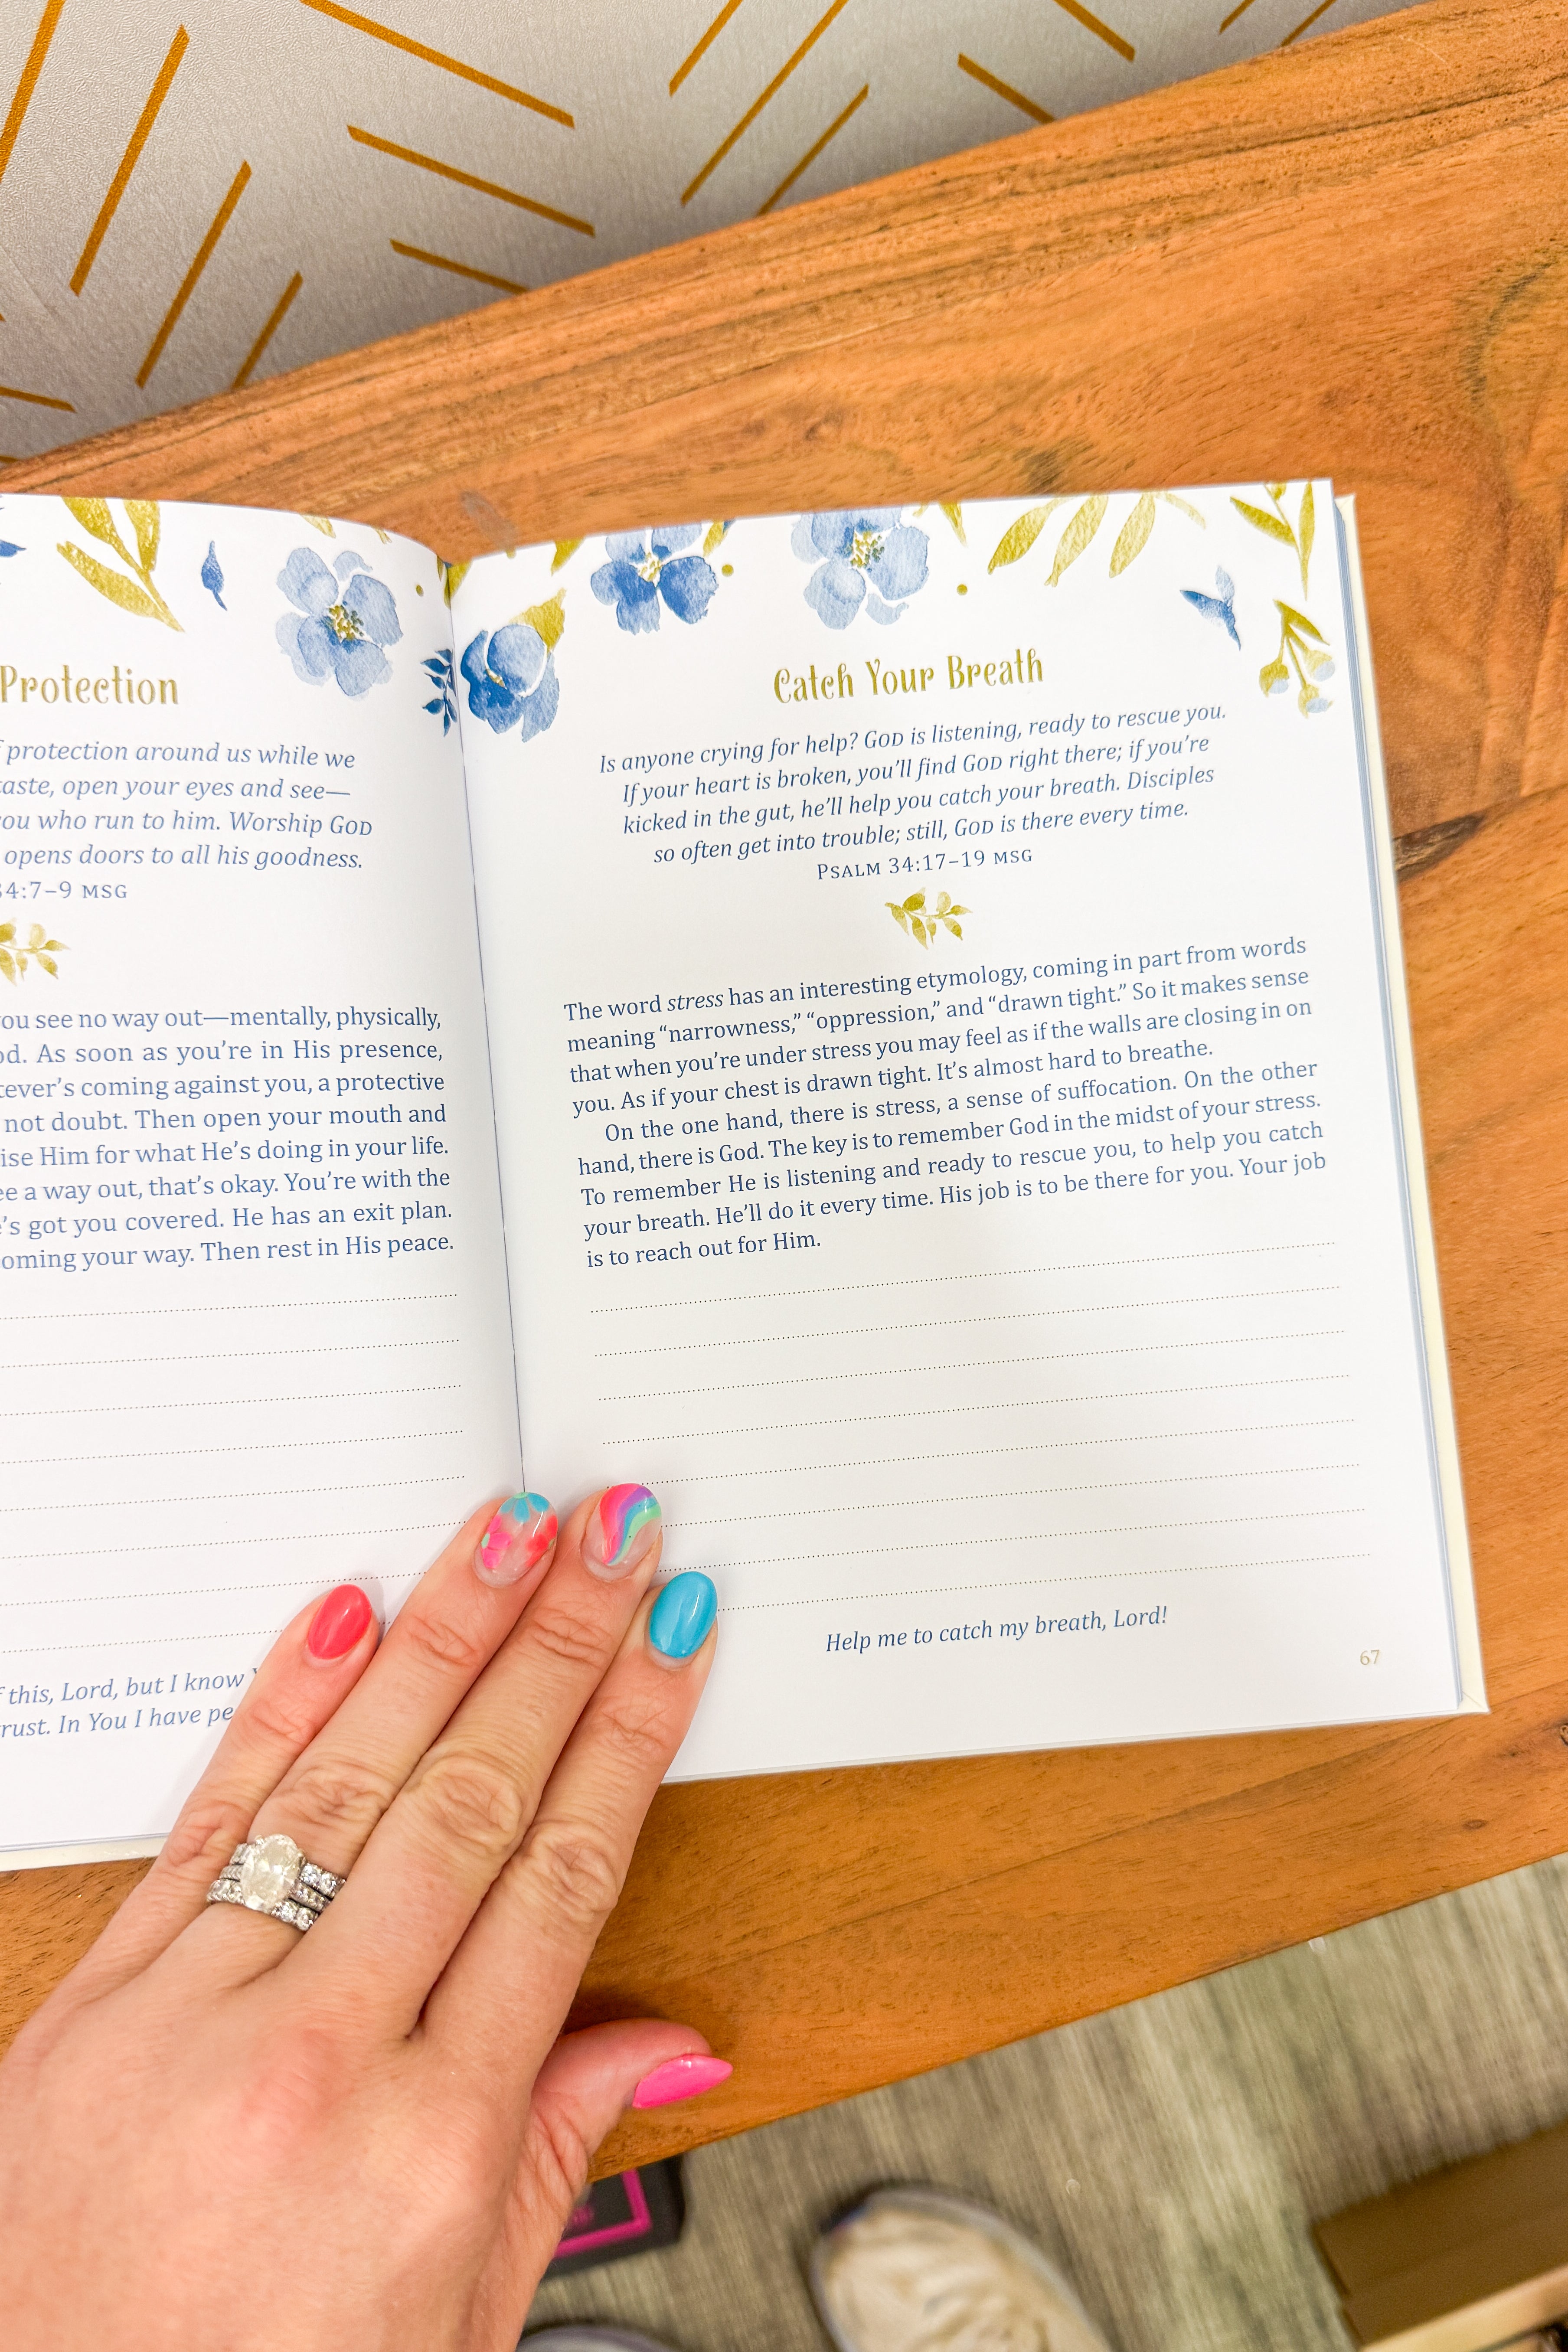 Protection
protection around us while we
taste, open your eyes and see—
you who run to him. Worship GOD
opens doors to all his goodness.
34:7–9 MSG
you see no way out—mentally, physically,
As soon as you're in His presence,
coming against you, a protective
not doubt. Then open your mouth and
Him for what He's doing in your life.
a way out, that's okay. You're with the
got you covered. He has an exit plan.
your way. Then rest in His peace.
this, Lord, but I know
In You I have
Catch Your Breath
Is anyone crying for help? GOD is listening, ready to rescue you.
If your heart is broken, you'll find GOD right there; if you're
kicked in the gut, he'll help you catch your breath. Disciples
so often get into trouble; still, GOD is there every time.
PSALM 34:17–19 MSG
The word stress has an interesting etymology, coming in part from words
meaning “narrowness,” “oppression,” and “drawn tight.” So it makes sense
that when you're under stress you may feel as if the walls are closing in on
you. As if your chest is drawn tight. It's almost hard to breathe.
On the one hand, there is stress, a sense of suffocation. On the other
hand, there is God. The key is to remember God in the midst of your stress.
To remember He is listening and ready to rescue you, to help you catch
your breath. He'll do it every time. His job is to be there for you. Your job
is to reach out for Him.
Help me to catch my breath, Lord!
67